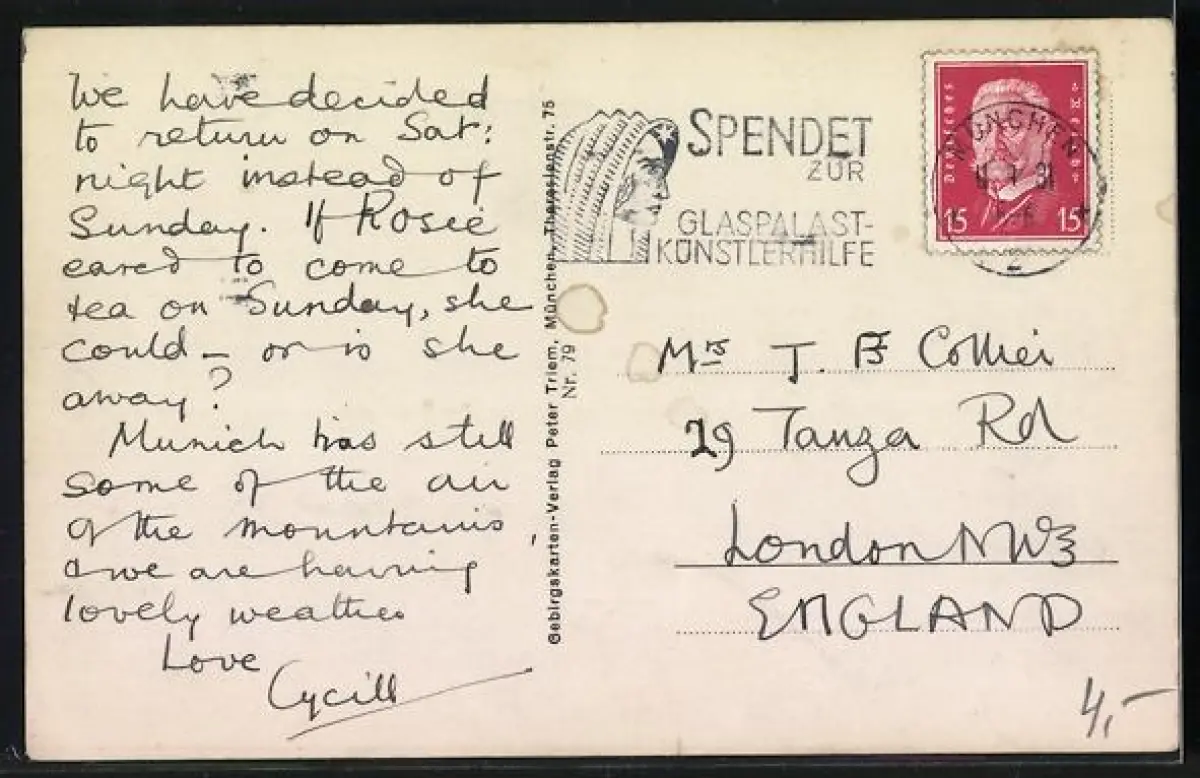 We have decided
to return on Sat:
night instead of
Sunday. If Rosie
cared to come to
tea on Sunday, she
could – or is she
away?
Munich has still
some of the air
of the mountains,
& we are having
lovely weather
Love
Cycill
Gebirgskarten-Verlag Peter Triem, München, Theresienstr. 75
Nr. 79
SPENDET
ZUR
GLASPALAST-
KÜNSTLERHILFE
Deutsches Reich
15 15
MÜNCHEN
31
2
Mrs T. F. Collier
29 Tanza Rd
London NW3
ENGLAND
4,-